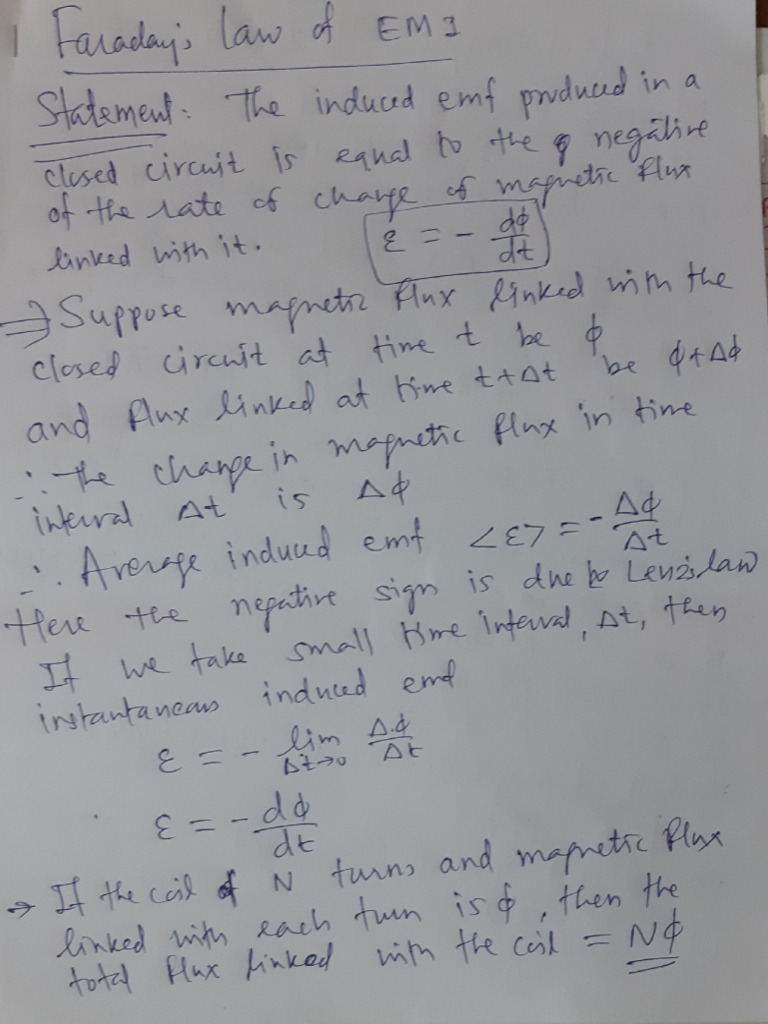 Faraday's law of EMI
Statement: The induced emf produced in a
closed circuit is equal to the negative
of the rate of change of magnetic flux
linked with it. ε = - dφ/dt
⇒ Suppose magnetic flux linked with the
closed circuit at time t be φ
and flux linked at time t+Δt be φ+Δφ
∴ The change in magnetic flux in time
interval Δt is Δφ
∴ Average induced emf <ε> = - Δφ/Δt
Here the negative sign is due to Lenz's law
If we take small time interval, Δt, then
instantaneous induced emf
ε = - lim Δt→0 Δφ/Δt
ε = - dφ/dt
→ If the coil of N turns and magnetic flux
linked with each turn is φ, then the
total flux linked with the coil = Nφ